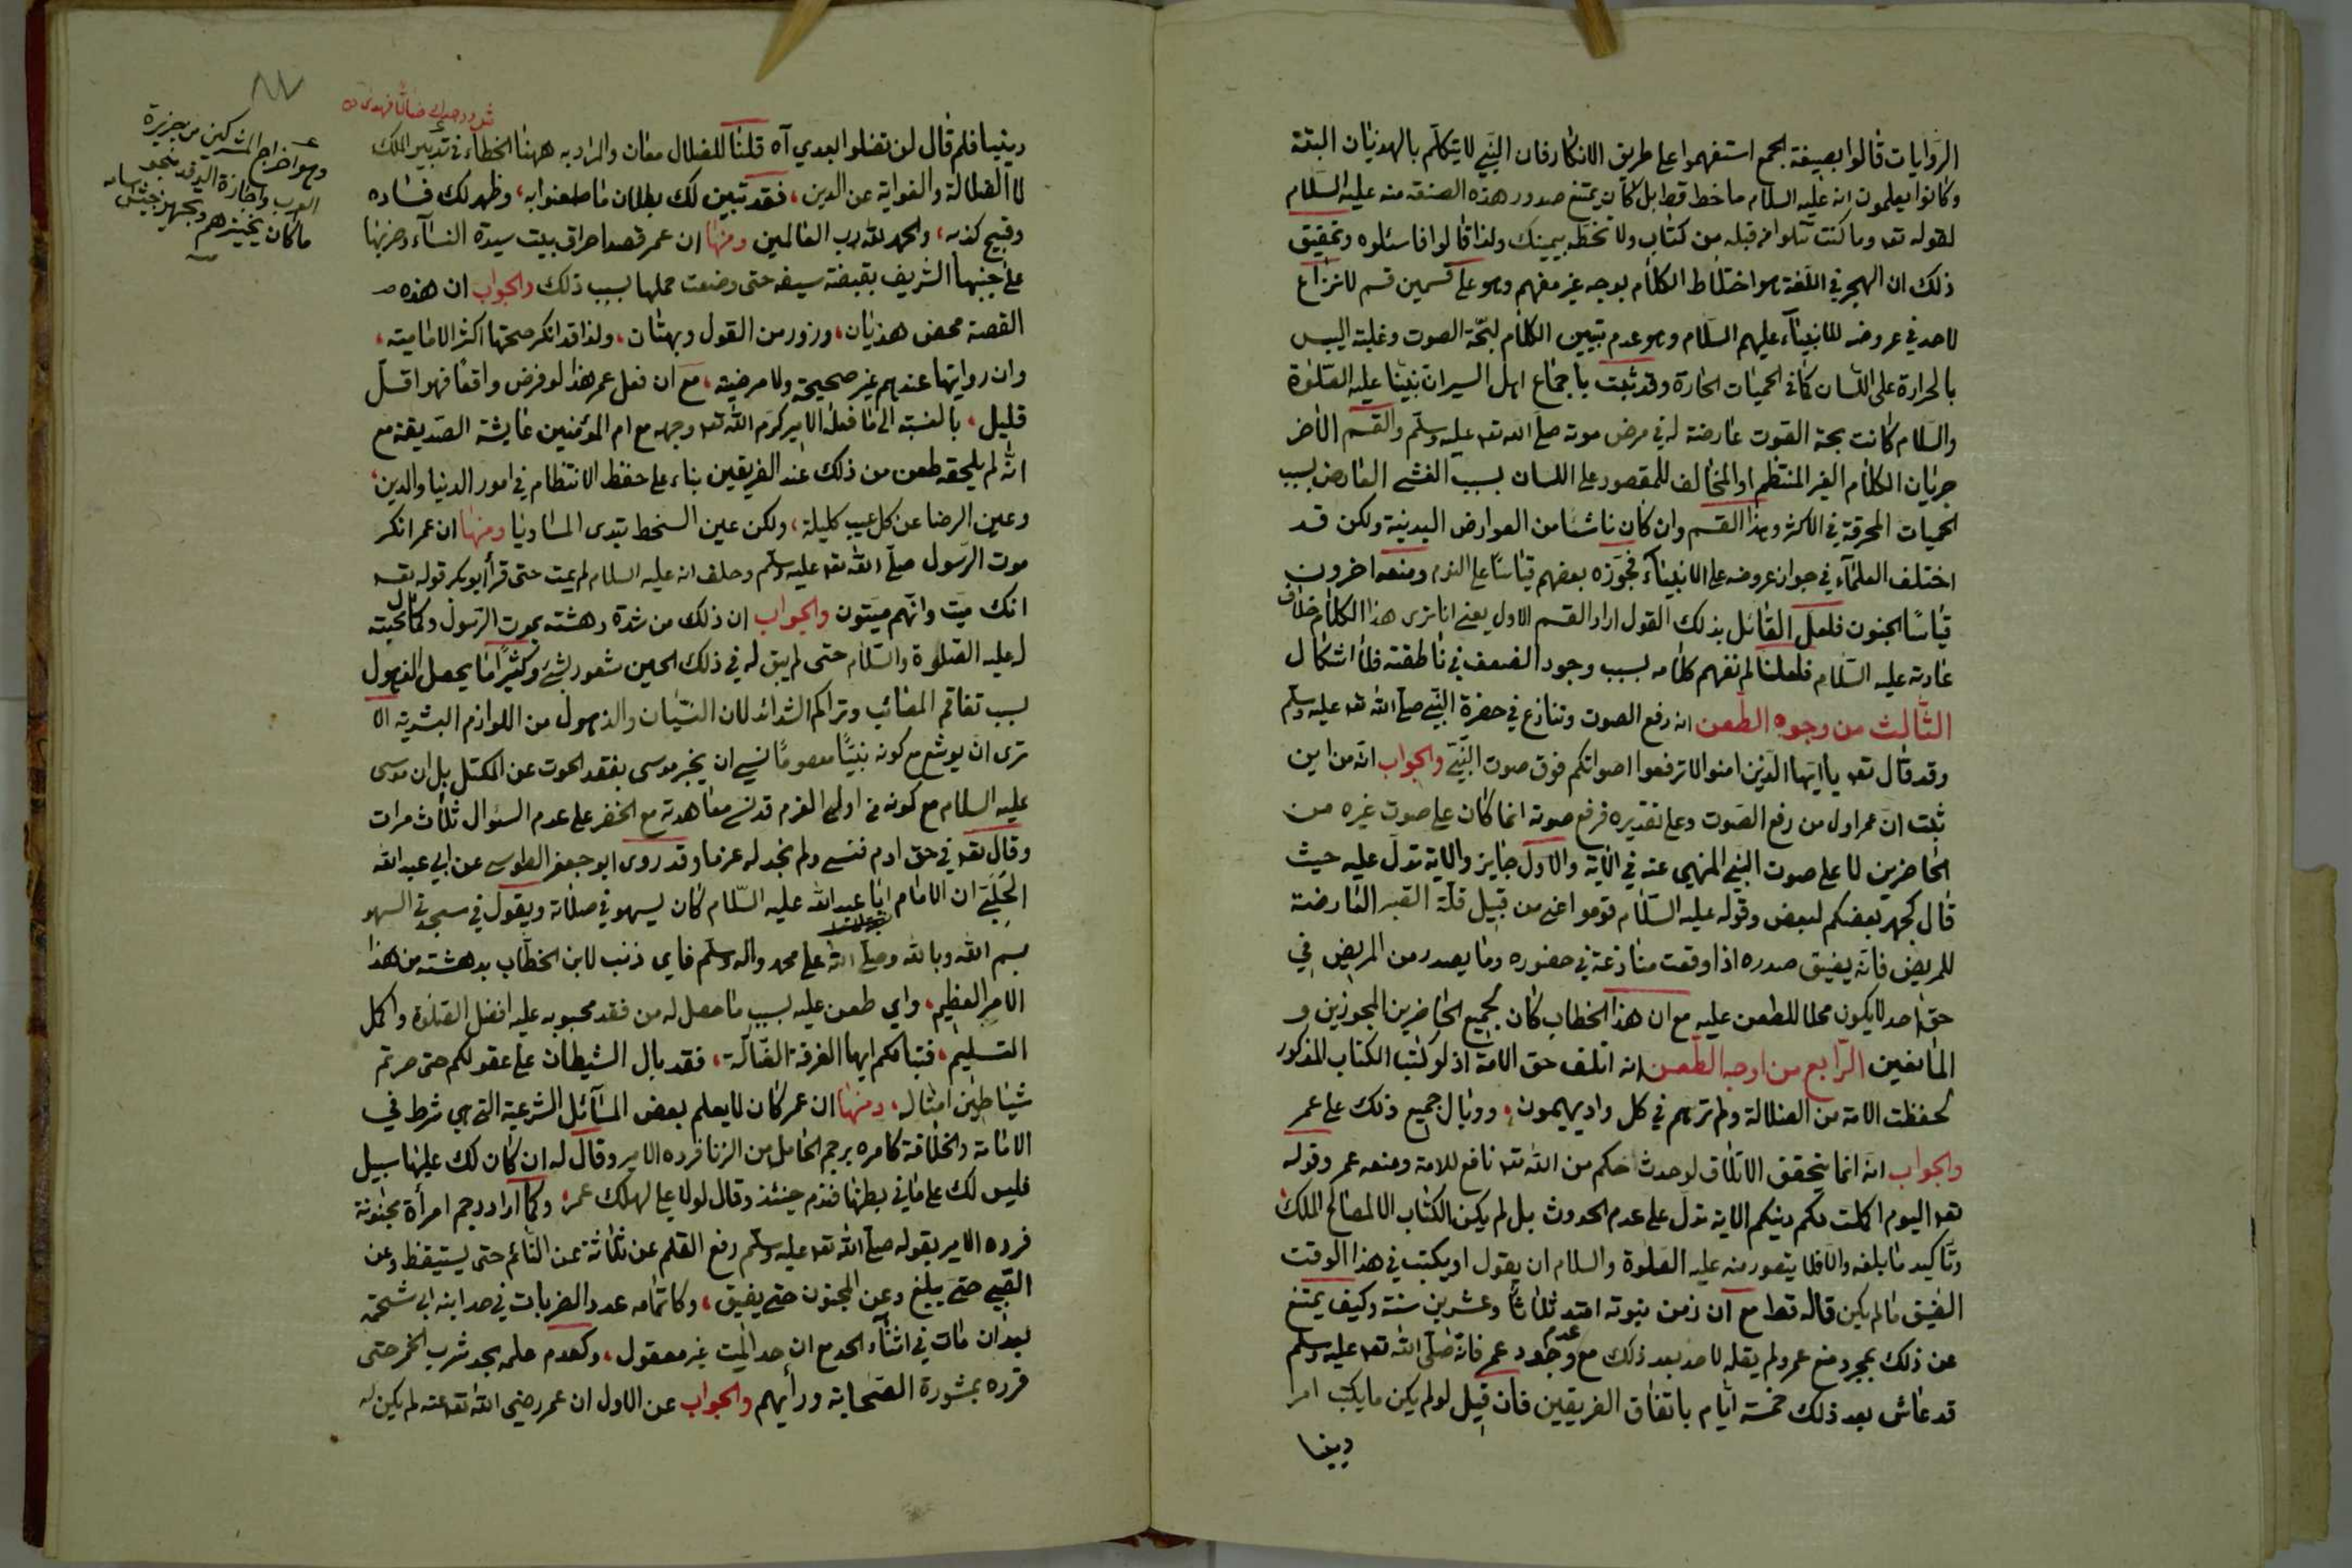 الروايات قالوا بصيغة الجمع استفهموا على طريق الانكار فان النبي لا يتكلم بالهذيان البتة
وكانوا يعلمون انه عليه السلام ما خط قط بل كان يمتنع صدور هذه الصنعة منه عليه السلام
لقوله تعه وما كنت تتلوا من قبله من كتاب ولا تخطه بيمينك ولذا قالوا فاسئلوه وتحقيق
ذلك ان الهجر في اللغة هو اختلاط الكلام بوجه غير مفهم وهو على قسمين قسم لا نزاع
لاحد في عروضه للانبياء عليهم السلام وهو عدم تبيين الكلام لبحّة الصوت وغلبة اليبس
بالحرارة على اللسان كما في الحميات الحارة وقد ثبت باجماع اهل السير ان نبينا عليه الصلوة
والسلام كانت بحة الصوت عارضة له في مرض موته صلى الله تعه عليه وسلم والقسم الاخر
جريان الكلام الغير المنتظم او المخالف للمقصود على اللسان بسبب الغشي العارض بسبب
الحميات المحرقة في الاكثر وهذا القسم وان كان ناشئا من العوارض البدنية ولكن قد
اختلف العلماء في جواز عروضه على الانبياء فجوزه بعضهم قياسا على النوم ومنعه اخرون
قياسا الجنون فلعل القائل بذلك القول اراد القسم الاول يعني انا نرى هذا الكلام خلاف
عادته عليه السلام فلعلنا لم نفهم كلامه بسبب وجود الضعف في ناطقته فلا اشكال
الثالث من وجوه الطعن انه رفع الصوت وتنازع في حضرة النبي صلى الله تعه عليه وسلم
وقد قال تعه يا ايها الذين امنوا لا ترفعوا اصواتكم فوق صوت النبي والجواب انه من اين
ثبت ان عمر اول من رفع الصوت وعلى تقديره فرفع صوته انما كان على صوت غيره من
الحاضرين لا على صوت النبي المنهي عنه في الاية والاول جايز والاية تدل عليه حيث
قال كجهر بعضكم لبعض وقوله عليه السلام قوموا عني من قبيل قلة الصبر العارضة
للمريض فانه يضيق صدره اذا وقعت منازعة في حضوره وما يصدر من المريض في
حق احد لا يكون محلا للطعن عليه مع ان هذا الخطاب كان لجميع الحاضرين المجوزين و
المانعين الرابع من اوجه الطعن انه اتلف حق الامة اذ لو كتب الكتاب المذكور
لحفظت الامة من الضلالة ولم ترهم في كل واد يهيمون، ووبال جميع ذلك على عمر
والجواب انه انما يتحقق الاتلاف لو حدث حكم من الله تعه نافع للامة ومنعه عمر وقوله
تعه اليوم اكملت لكم دينكم الاية تدل على عدم الحدوث بل لم يكن الكتاب الا لمصالح الملك
وتاكيد ما بلغه والا فلا يتصور منه عليه الصلوة والسلام ان يقول او يكتب في هذا الوقت
الضيق ما لم يكن قاله قط مع ان زمن نبوته امتد ثلاثا وعشرين سنة وكيف يمتنع
عن ذلك بمجرد منع عمر ولم يقله لاحد بعد ذلك مع عدم وجود عمر فانه صلى الله تعه عليه وسلم
قد عاش بعد ذلك خمسة ايام باتفاق الفريقين فان قيل لو لم يكن ما يكتب امرا
دينيا
٨٧
وهو اخراج المشركين من جزيرة
العرب واجازة الوفد بنحو
ما كان يجيزهم وتجهيز جيش اسامه
دينيا فلم قال لن تضلوا بعدي آه قلنا للضلال معان والمراد به ههنا الخطاء في تدبير الملك
لا الضلالة والغواية عن الدين، فقد تبين لك بطلان ما طعنوا به، وظهر لك فساده
وقبح كذبه، والحمد لله رب العالمين ومنها ان عمر قصد احراق بيت سيدة النساء وضربها
على جنبها الشريف بقبضة سيفه حتى وضعت حملها بسبب ذلك والجواب ان هذه
القصة محض هذيان، وزور من القول وبهتان، ولذا قد انكر صحتها اكثر الامامية،
وان روايتها عندهم غير صحيحة ولا مرضية، مع ان فعل عمر هذا لو فرض واقعا فهو اقل
قليل، بالنسبة الى ما فعله الامير كرم الله تعه وجهه مع ام المؤمنين عايشة الصديقة مع
انه لم يلحقه طعن من ذلك عند الفريقين بناء على حفظ الانتظام في امور الدنيا والدين،
وعين الرضا عن كل عيب كليلة، ولكن عين السخط تبدى المساويا ومنها ان عمر انكر
موت الرسول صلى الله تعه عليه وسلم وحلف انه عليه السلام لم يمت حتى قرأ ابو بكر قوله تعه
انك ميت وانهم ميتون والجواب ان ذلك من شدة دهشته بموت الرسول وكمال محبته
له عليه الصلوة والسلام حتى لم يبق له في ذلك الحين شعور بشيء وكثيرا ما يحصل الذهول
بسبب تفاقم المصائب وتراكم الشدائد لان النسيان والذهول من اللوازم البشرية الا
ترى ان يوشع مع كونه نبيا معصوما نسي ان يخبر موسى بفقد الحوت عن المكتل بل ان موسى
عليه السلام مع كونه من اولى العزم قد نسي معاهدته مع الخضر على عدم السئوال ثلاث مرات
وقال تعه في حق ادم فنسي ولم نجد له عزما وقد روى ابو جعفر الطوسي عن ابي عبد الله
الحلبي ان الامام ابا عبد الله عليه السلام كان يسهو في صلاته ويقول في سجدتي السهو
بسم الله وبالله وصلى الله على محمد واله وسلم فاي ذنب لابن الخطاب بدهشته من هذا
الامر العظيم، واي طعن عليه بسبب ما حصل له من فقد محبوبه عليه افضل الصلوة واكمل
التسليم، فتبا لكم ايها الفرقة الضالة، فقد بال الشيطان على عقولكم حتى صرتم
شياطين امثاله، ومنها ان عمر كان لا يعلم بعض المسائل الشرعية التي هي شرط في
الامامة والخلافة كامره برجم الحامل من الزنا فرده الامير وقال له ان كان لك عليها سبيل
فليس لك على ما في بطنها فندم حينئذ وقال لولا علي لهلك عمر، وكما اراد رجم امرأة مجنونة
فرده الامير بقوله صلى الله تعه عليه وسلم رفع القلم عن ثلاثة عن النائم حتى يستيقظ وعن
الصبي حتى يبلغ وعن المجنون حتى يفيق، وكاتمامه عدد الضربات في حد ابنه ابي شحمة
بعد ان مات في اثناء الحد مع ان حد الميت غير معقول، وكعدم علمه بحد شرب الخمر حتى
قرره بمشورة الصحابة ورأيهم والجواب عن الاول ان عمر رضي الله تعه عنه لم يكن له